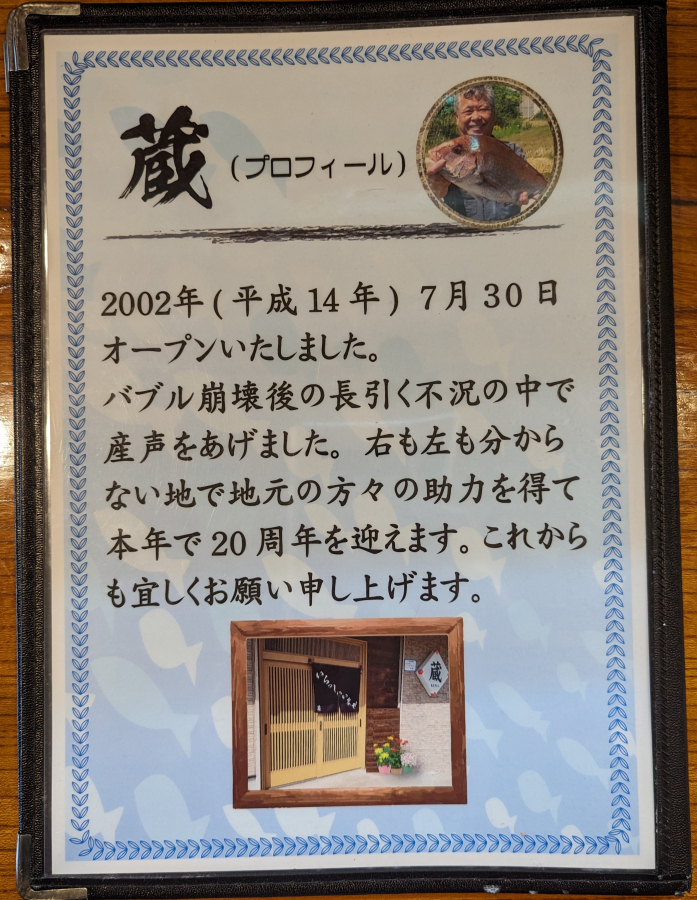 蔵(プロフィール)
2002年(平成14年) 7月30日
オープンいたしました。
バブル崩壊後の長引く不況の中で
産声をあげました。右も左も分から
ない地で地元の方々の助力を得て
本年で20周年を迎えます。これから
も宜しくお願い申し上げます。
いらっしゃいませ
蔵